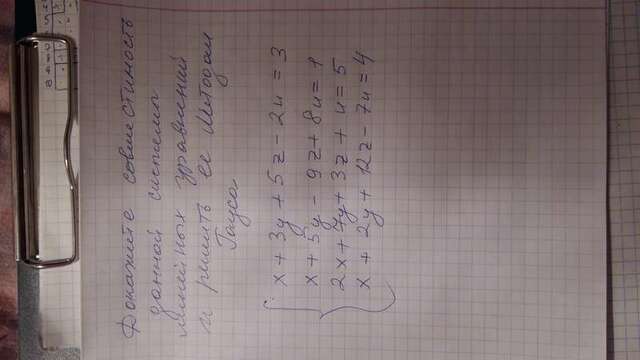 Докажите совместиность
данной системы
линейных уравнений
и решить ее методом
Гауса
x + 3y + 5z - 2u = 3
x + 5y - 9z + 8u = 1
2x + 7y + 3z + u = 5
x + 2y + 12z - 7u = 4